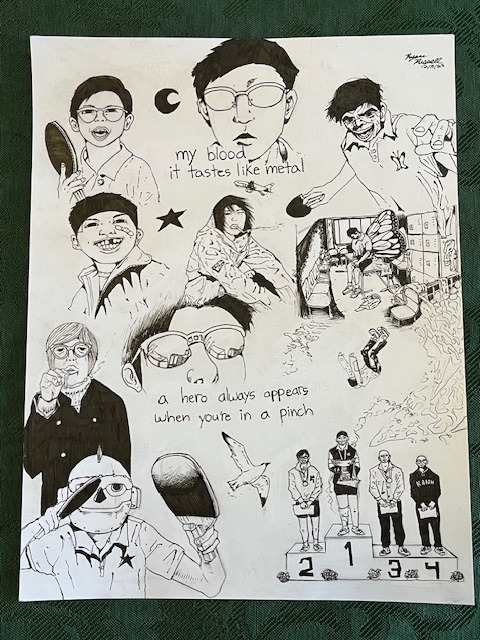 12/3/23
my blood
it tastes like metal
a hero always appears
when you're in a pinch
KAIOH
1
2
3
4